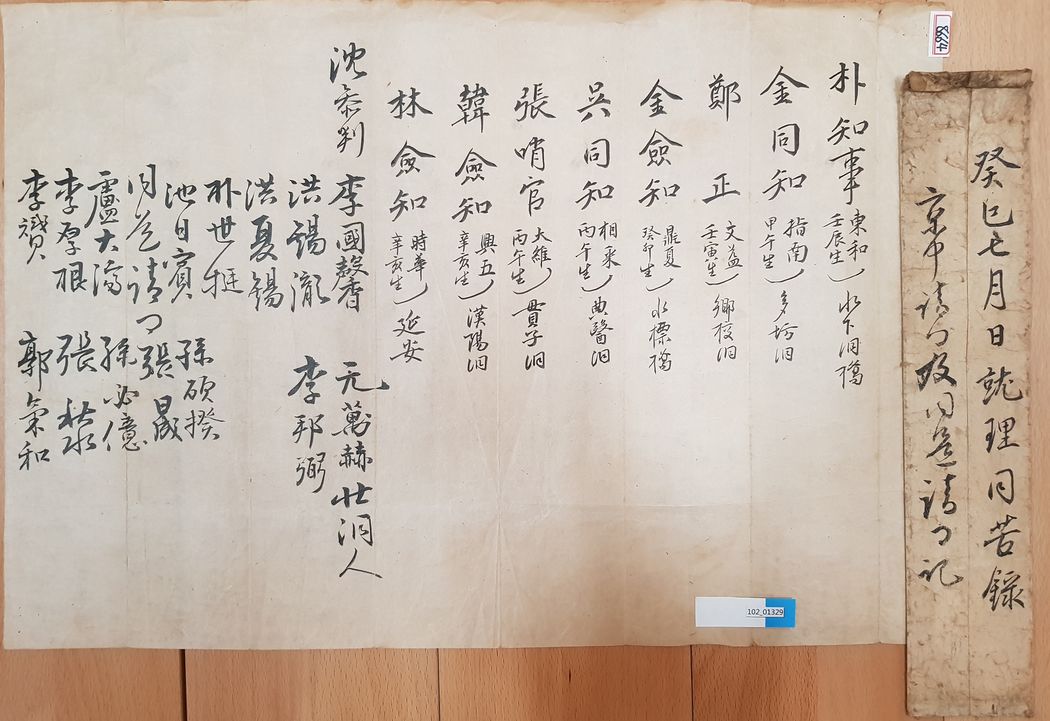 癸巳七月日就理同苦錄
京中請簡及同道請簡記
朴知事 東和 壬辰生 水下洞橋
金同知 指南 甲午生 多坊洞
鄭 正 文益 壬寅生 鄉校洞
金僉知 鼎夏 癸卯生 水標橋
吳同知 相采 丙午生 典醫洞
張哨官 大維 丙午生 貫子洞
韓僉知 興五 辛亥生 漢陽洞
林僉知 時華 辛亥生 延安
沈參判
李國馨 元萬赫 壯洞人
洪錫瀧 李邦弼
洪夏錫
朴世挺
池日賓 孫碩揆
同道請 張晟
盧大濟 孫必億
李厚根 張秋水
李贇 郭氣和
8664
102_01329